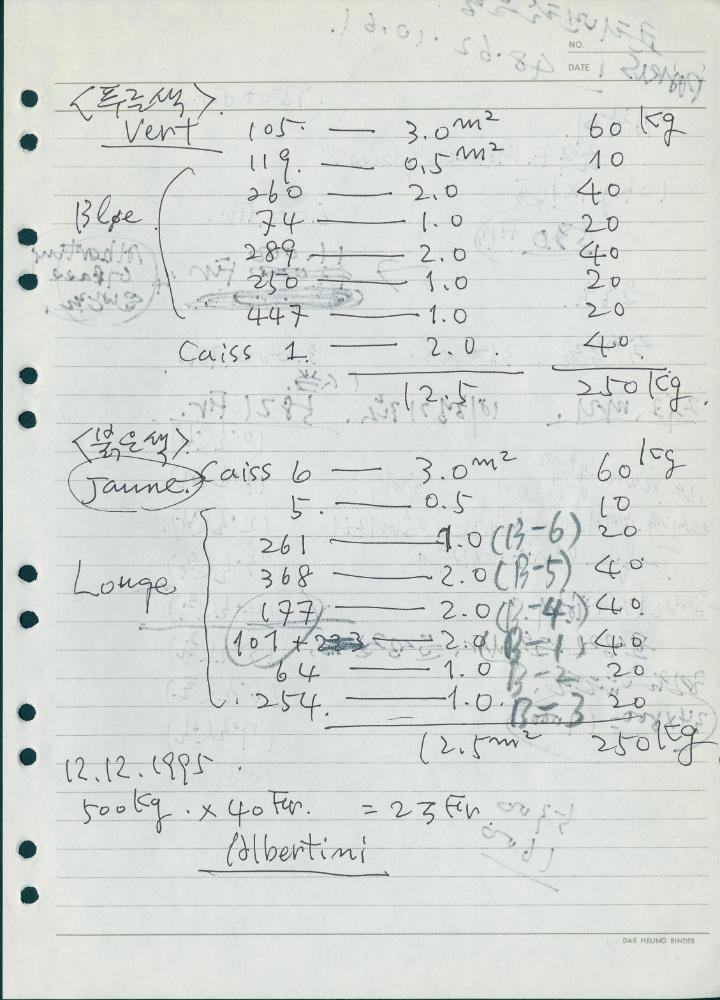 NO.
DATE
<푸른색>
Vert 105 — 3.0 m² 60 Kg
119. — 0.5 m² 10
260 — 2.0 40
Bløe 74 — 1.0 20
289 — 2.0 40
250 — 1.0 20
447 — 1.0 20
Caiss 1 — 2.0. 40.
12.5 250 Kg.
<붉은색>
Jaune. Caiss 6 — 3.0 m² 60 Kg
5. — 0.5 10
261 — 1.0 (B-6) 20
Louge 368 — 2.0 (B-5) 40
177 — 2.0 (B-4) 40
101 + — 2.0 B-1 40
64 — 1.0 B-2 20
254. — 1.0. B-3 20
12.5 m² 250 Kg
12.12.1995.
500 Kg. × 40 Fr. = 23 Fr.
Albertini
DAE HEUNG BINDER